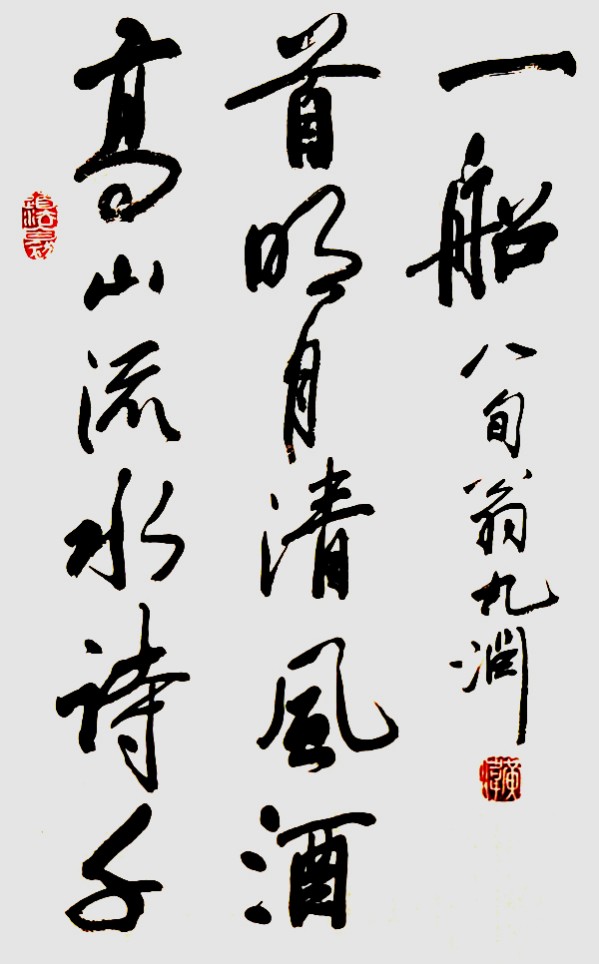 高山流水詩千
首明月清風酒
一船
八旬翁九淵